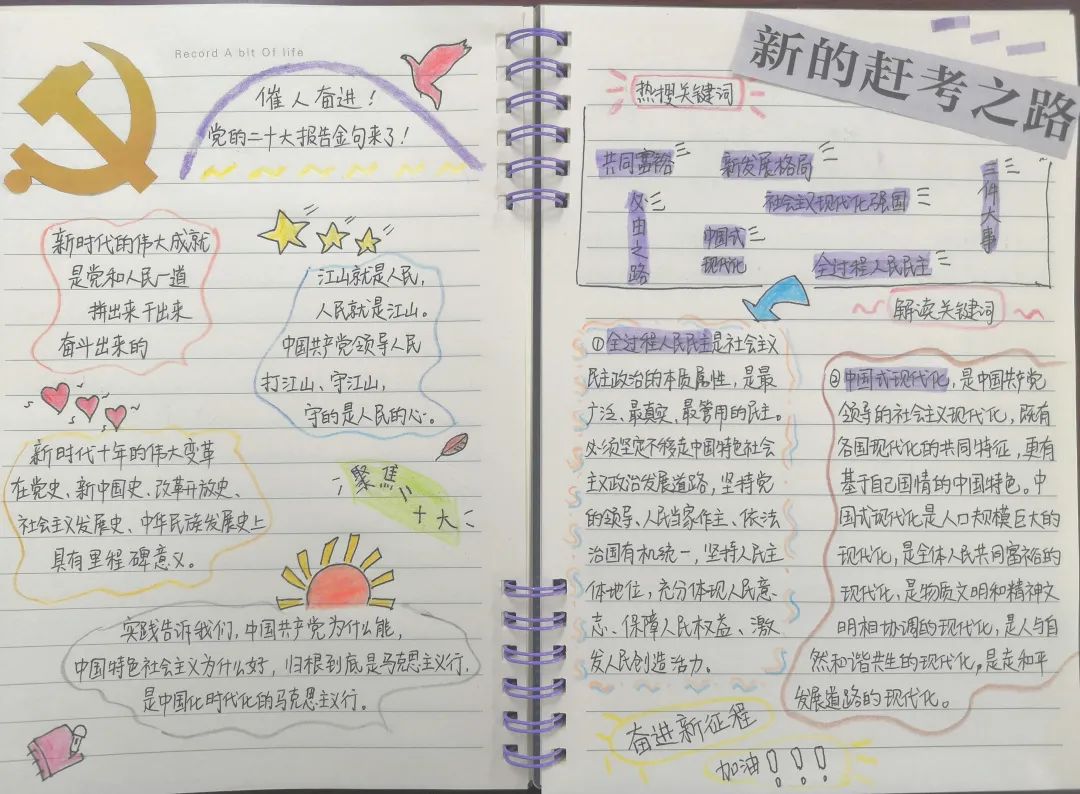 Record A bit Of life
催人奋进！
党的二十大报告金句来了！
新时代的伟大成就
是党和人民一道
拼出来干出来
奋斗出来的
江山就是人民，
人民就是江山。
中国共产党领导人民
打江山、守江山，
守的是人民的心。
新时代十年的伟大变革
在党史、新中国史、改革开放史、
社会主义发展史、中华民族发展史上
具有里程碑意义。
聚焦
十大
实践告诉我们，中国共产党为什么能，
中国特色社会主义为什么好，归根到底是马克思主义行，
是中国化时代化的马克思主义行。
新的赶考之路
热搜关键词
共同富裕
新发展格局
三件大事
必由之路
社会主义现代化强国
中国式
现代化
全过程人民民主
解读关键词
①全过程人民民主是社会主义
民主政治的本质属性，是最
广泛、最真实、最管用的民主。
必须坚定不移走中国特色社会
主义政治发展道路，坚持党
的领导、人民当家作主、依法
治国有机统一，坚持人民主
体地位，充分体现人民意
志、保障人民权益、激
发人民创造活力。
②中国式现代化，是中国共产党
领导的社会主义现代化，既有
各国现代化的共同特征，更有
基于自己国情的中国特色。中
国式现代化是人口规模巨大的
现代化，是全体人民共同富裕的
现代化，是物质文明和精神文
明相协调的现代化，是人与自
然和谐共生的现代化，是走和平
发展道路的现代化。
奋进新征程
加油！！！